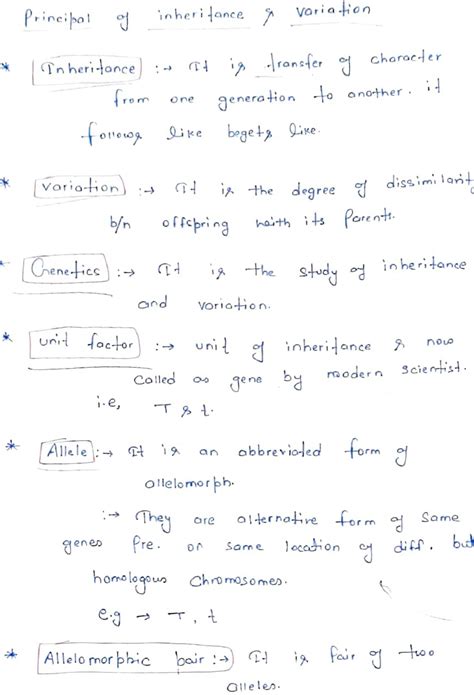 Principal of inheritance & variation
* Inheritance :→ It is transfer of character
from one generation to another. it
follows like begets like.
* Variation :→ It is the degree of dissimilarity
b/n offspring with its Parents.
Genetics :→ It is the study of inheritance
and variation.
* unit factor :→ unit of inheritance & now
Called as gene by modern scientist.
i.e, T & t.
* Allele :→ It is an abbreviated form of
allelomorph.
:→ They are alternative form of same
genes pre. on same location of diff. but
homologous Chromosomes.
e.g → T, t
* Allelomorphic bair :→ It is fair of two
alleles.